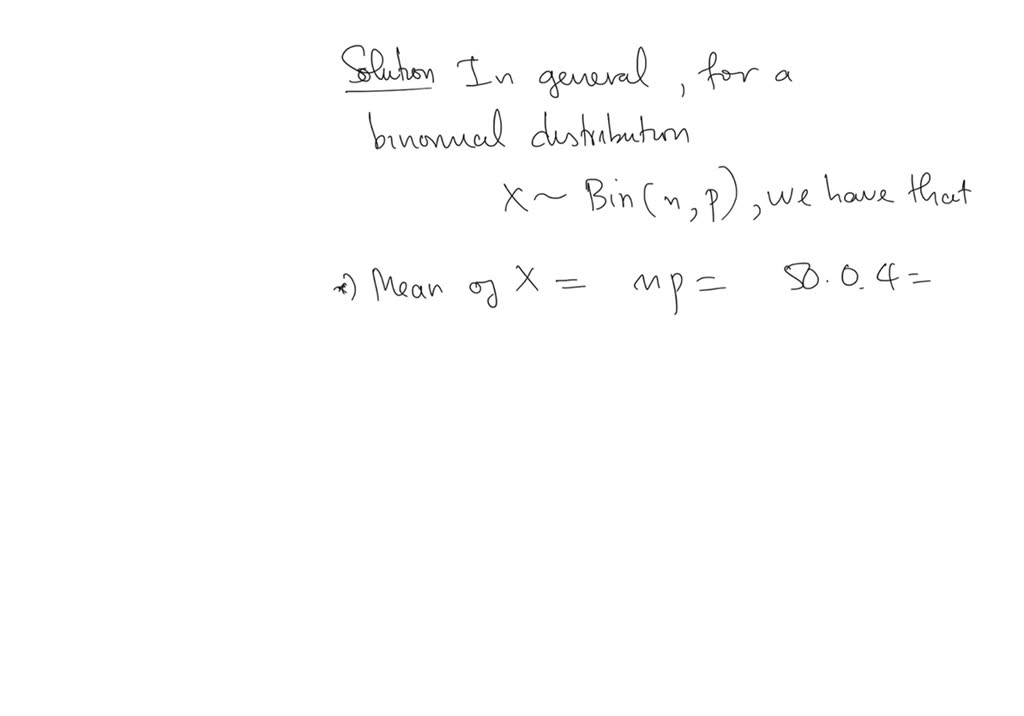 Solution In general, for a
binomial distribution
X ~ Bin(n, p), we have that
*) Mean of X = np = 50.0.4 =